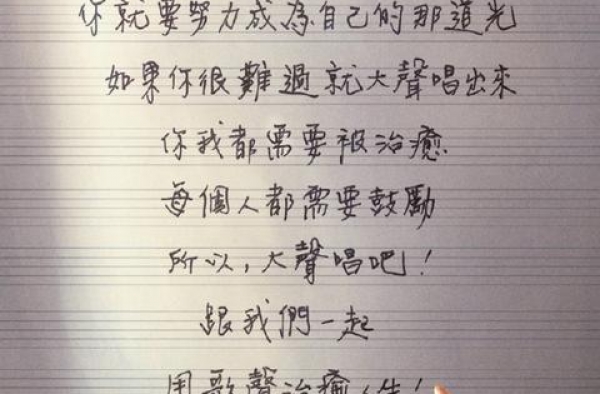 你就要努力成為自己的那道光
如果你很難過就大聲唱出來
你我都需要被治癒
每個人都需要鼓勵
所以,大聲唱吧!
跟我們一起
用歌聲治癒人生!